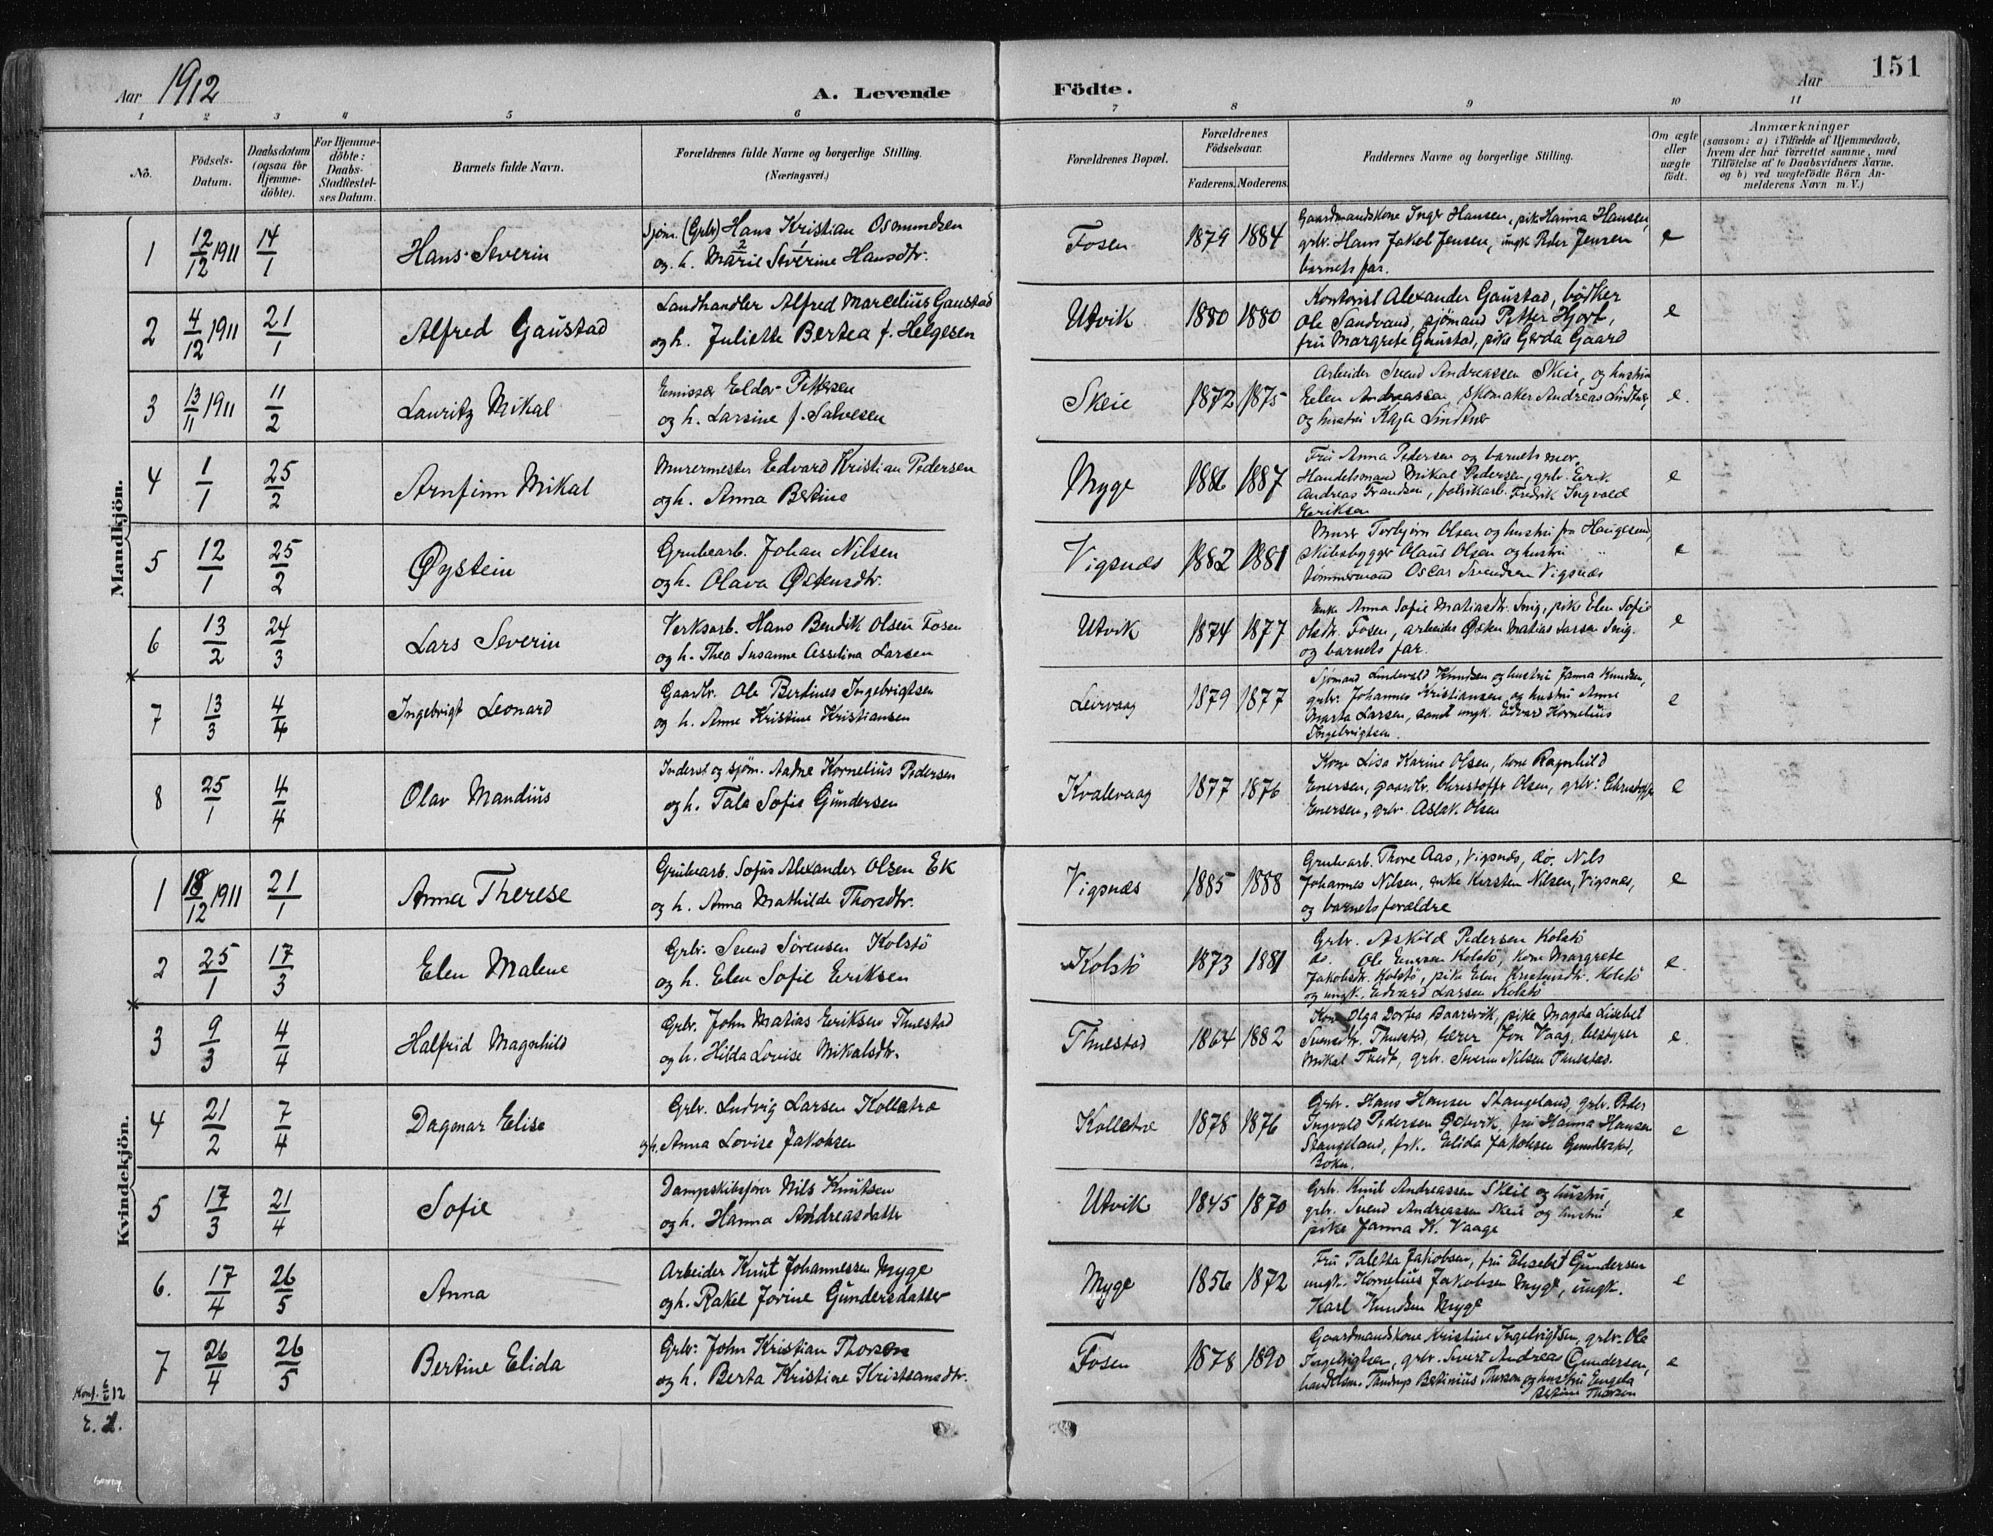 Aar 1912
A. Levende
Födte.
Aar
151
1 2 3 4 5 6 7 8 9 10 11
No.
Födsels-Datum.
Daabsdatum (ogsaa for Hjemmedöbte).
For Hjemmedöbte: Daabs-Stadfæstelses Datum.
Barnets fulde Navn.
Forældrenes fulde Navne og borgerlige Stilling.
(Næringsvei.)
Forældrenes Bopæl.
Forældrenes Födselsaar.
Faderens. Moderens.
Faddernes Navne og borgerlige Stilling.
Om ægte eller uægte födt.
Anmærkninger
(saasom: a) i Tilfælde af Hjemmedaab, hvem der har forrettet samme, med Tilföielse af to Daabsvidners Navne. og b) ved uægtefödte Börn Anmelderens Navn m. V.)
Mandkjön.
1 12/12 1911 14/1 Hans Severin
Sjøm. (Grbr) Hans Kristian Osmundsen
og h. Marie Severine Hansdtr.
Fosen 1879 1884
Gaardmandskone Inger Hansen, pike Hanna Hansen,
grbr. Hans Jakob Jensen, ungk. Peder Jensen
barnets far.
e
2 4/12 1911 21/1 Alfred Gaustad
Landhandler Alfred Marcelius Gaustad
og h. Juliette Bertea f. Helgesen
Utvik 1880 1880
Kontorist Alexander Gaustad, bødker
Ole Sandvand, sjømand Petter Hjort,
fru Margrete Gaustad, pike Gerda Gaard
e
3 13/11 1911 11/2 Lauritz Mikal
Emissær Elder Pettersen
og h. Larsine f. Salvesen
Skeie 1872 1875
Arbeider Svend Andreassen Skeie, og hustru
Elen Andreassen, skomaker Andreas Lindtner,
og hustru Kaja Lindtner
e.
4 1/1 25/2 Arnfinn Mikal
Murermester Edvard Kristian Pedersen
og h. Anna Bertine
Myge 1886 1887
Fru Anna Pedersen og barnets mor,
Handelsmand Mikal Pedersen, grbr. Eerik
Andreas Frandsen, fabrikarb. Fredrik Ingvald
Eeriksen
e
5 12/1 25/2 Øystein
Grubearb. Johan Nilsen
og h. Olava Østensdtr.
Vigsnæs 1882 1881
Murer Torbjørn Olsen og hustru fra Haugesund,
skibsbygger Olaus Olsen og hustru "
tømmermand Oscar Svendsen Vigsnæs
e
6 13/2 24/3 Lars Severin
Verksarb. Hans Bendik Olsen Fosen
og h. Thea Susanne Asseline Larsen
Utvik 1874 1877
Enke Anna Sofie Matiasdtr. Snig, pike Elen Sofie
Olsdtr. Fosen, arbeider Østen Matias Larsen Snig.
og barnets far.
e
7 13/3 4/4 Ingebrigt Leonard
Gaardbr. Ole Bertines Ingebrigtsen
og h. Anne Kristine Kristiansen
Leirvaag 1879 1877
Sjømand Lindevald Knudsen og hustru Janna Knudsen,
grbr. Johannes Kristiansen og hustru Anne
Marta Larsen, samt ungk. Edvard Kornelius
Ingebrigtsen.
e
8 25/1 4/4 Olav Mandius
Inderst og sjøm. Aadne Kornelius Pedersen
og h. Tala Sofie Gundersen
Kvalevaag 1877 1876
Kone Lisa Karine Olsen, kone Ragnhild
Enersen, gaardbr. Christoffer Olsen, grbr. Christoffer
Enersen, grbr. Aslak Olsen
e
Kvindekjön.
1 18/12 1911 21/1 Anna Therese
Grubearb. Sofus Alexander Olsen Ek
og h. Anna Mathilde Thorsdtr.
Vigsnæs 1885 1888
Grubearb. Thore Aas, Vigsnæs, do. Nils
Johannes Nilsen, enke Kirsten Nilsen, Vigsnæs,
og barnets forældre
e
2 25/1 17/3 Elen Malene
Grbr. Svend Sørensen Kolstø
og h. Elen Sofie Eeriksen
Kolstø 1873 1881
Grbr. Askild Pedersen Kolstø
do. Ole Enersen Kolstø, kone Margrete
Jakobsdtr. Kolstø, pike Elen Knutsdtr. Kolstø
og ungk. Edvard Larsen Kolstø
e.
3 9/3 4/4 Halfrid Magnhild
Grbr. John Matias Eeriksen Thuestad
og h. Hilda Lovise Mikalsdtr.
Thuestad 1864 1882
Kone Olga Dortea Baarsvik, pike Magda Lisebet
Svensdtr. Thuestad, lærer Jon Vaag, bestyrer
Mikal Tvedt, grbr. Severin Nilsen Thuestad.
e.
4 21/2 7/4 Dagmar Elise
Grbr. Ludvig Larsen Kolletræ
og h. Anna Lovise Jakobsen
Kolletræ 1878 1876
Grbr. Hans Hansen Stangeland, grbr. Peder
Ingvald Pedersen Østevik, fru Hanna Hansen
Stangeland, frk. Elida Jakobsen
Bokn.
e
5 17/3 21/4 Sofie
Dampskibsfører Nils Knutsen
og h. Hanna Andreasdatter
Utvik 1845 1870
Grbr. Knut Andreassen Skeie og hustru,
grbr. Svend Andreassen Skeie og hustru
pike Janna K. Vaage
e
6. 17/4 26/5 Anna
Arbeider Knut Johannessen Myge
og h. Rakel Jorine Gundersdatter
Myge 1856 1872
Fru Taletta Jakobsen, fru Elisebet Gundersen
ungk. Kornelius Jakobsen Myge, ungk.
Karl Knudsen Myge
e
7 26/4 26/5 Bertine Elida
Grbr. John Kristian Thorsen
og h. Berta Kristine Kristiansdtr.
Fosen 1878 1890
Gaardmandskone Kristine Ingebrigtsen, grbr. Ole
Ingebrigtsen, grbr. Sivert Andreas Gundersen,
handelsm. Bertinius Thorsen og hustru Engela
Bertine Thorsen
e
Konf. 6/6 12
E. H.